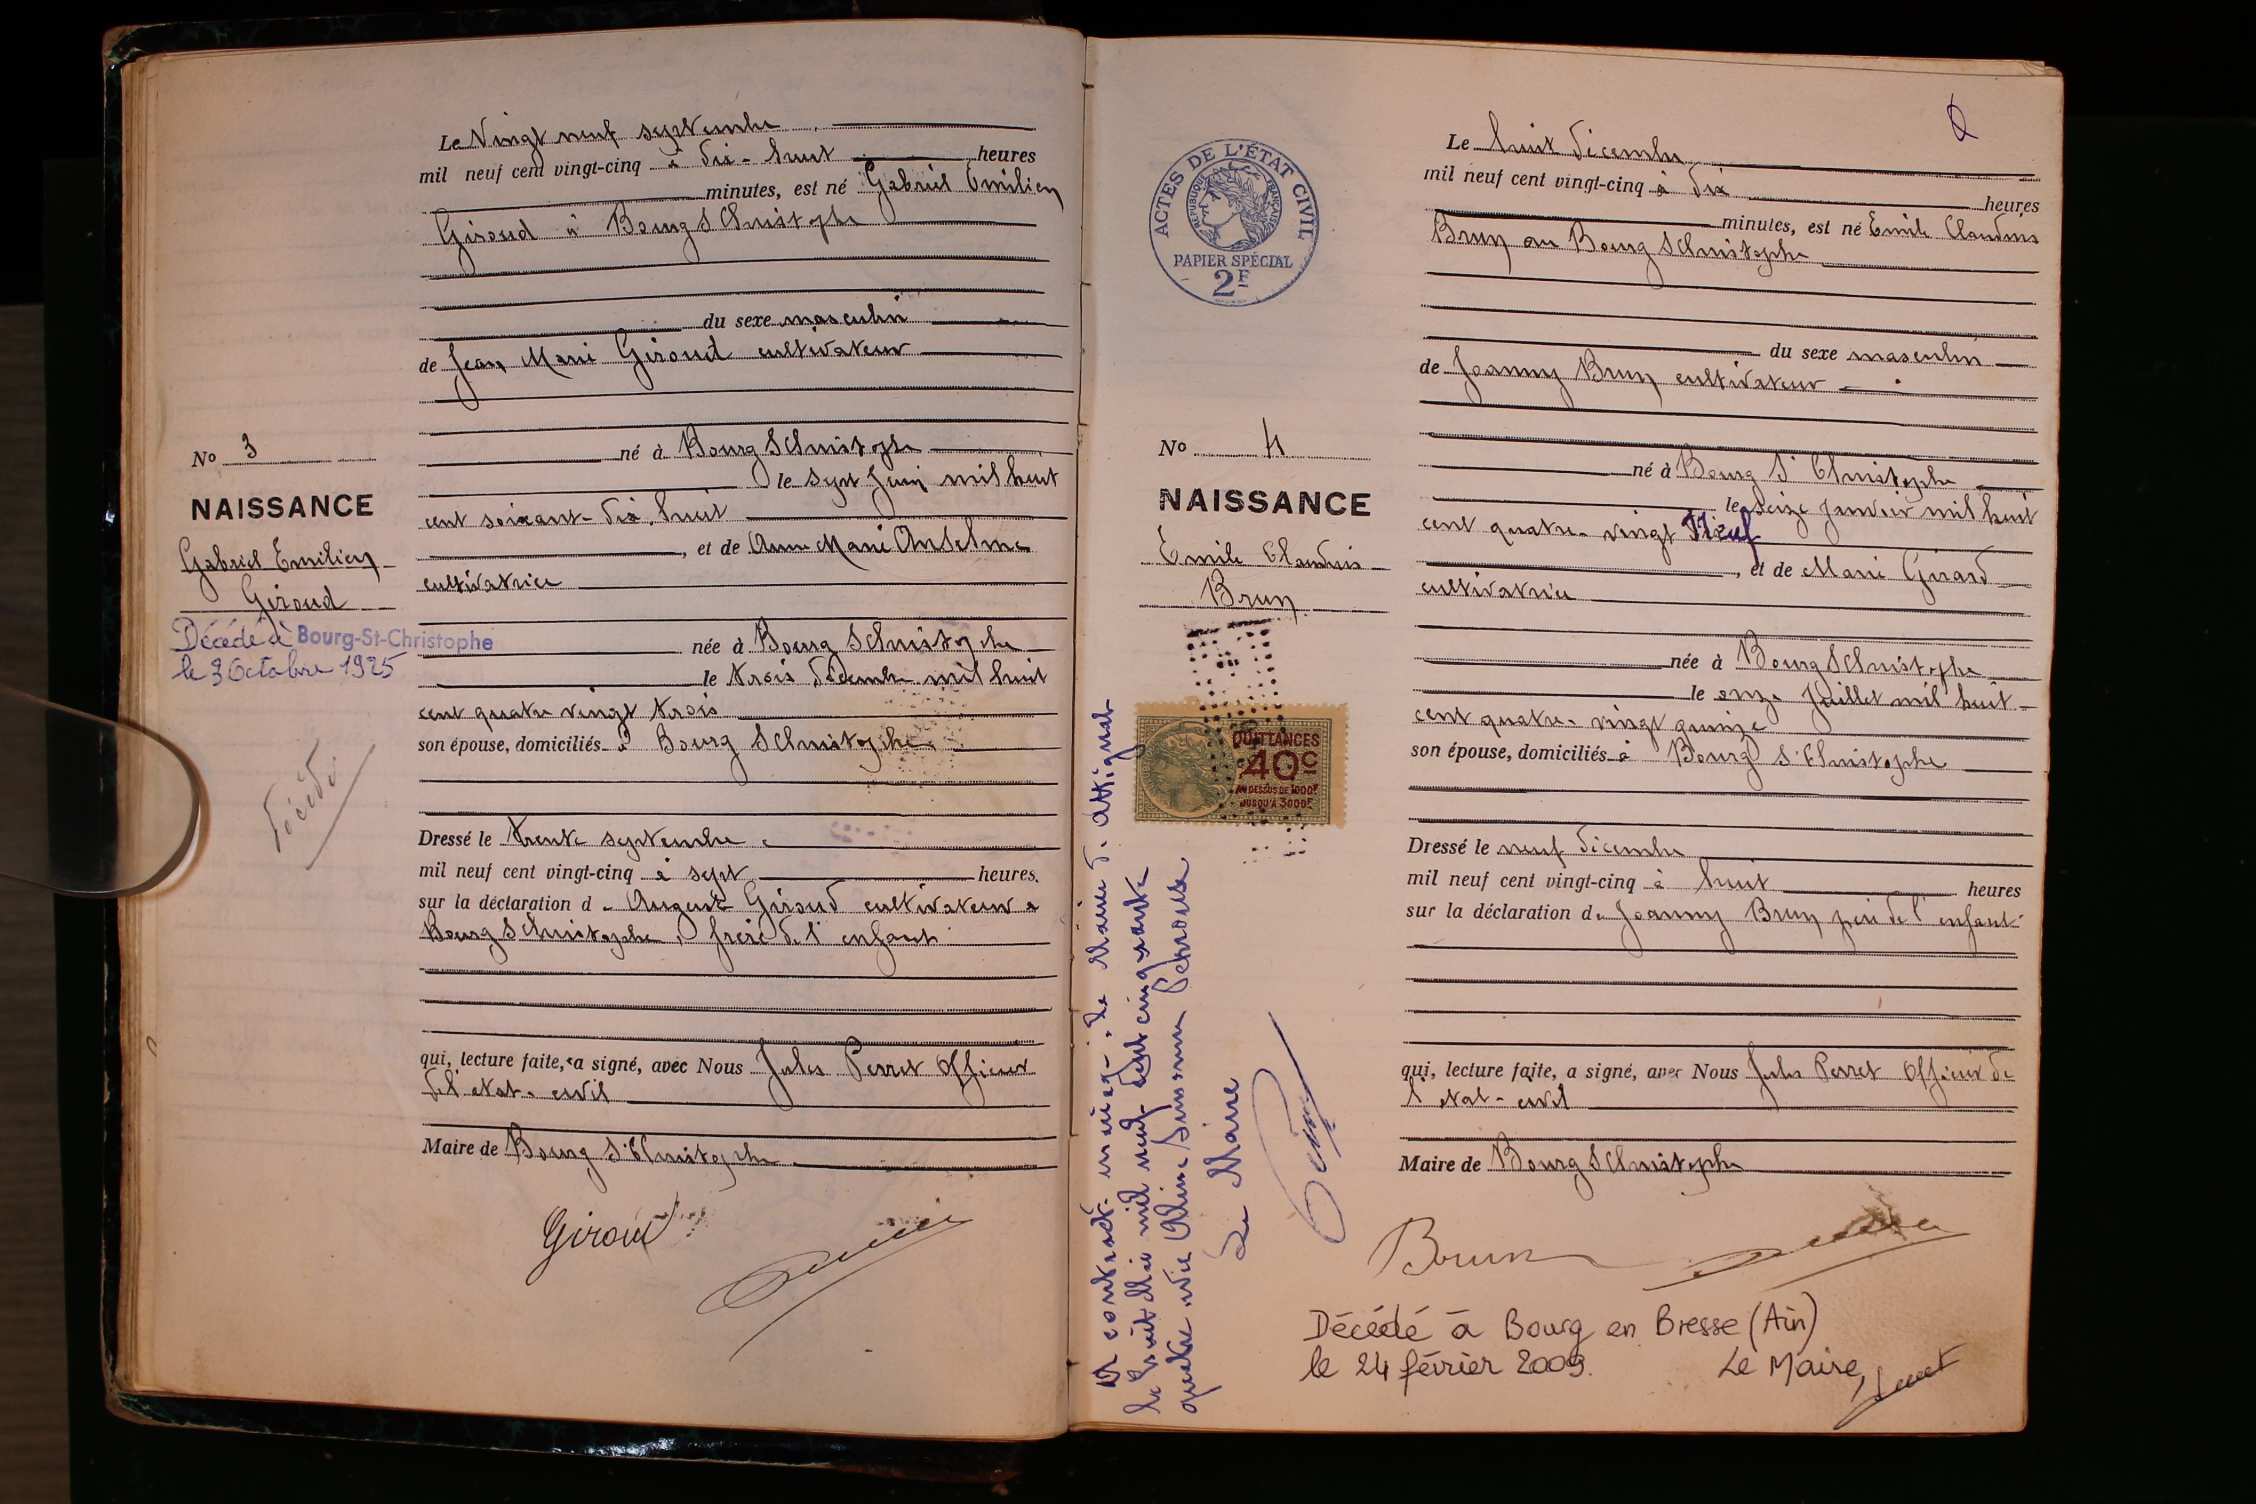 Le Vingt neuf septembre
mil neuf cent vingt-cinq à dix-huit heures
minutes, est né Gabriel Emilien
Giroud à Bourg St Christophe
du sexe masculin
de Jean Marie Giroud cultivateur
né à Bourg St Christophe
le sept juin mil huit
cent soixante-dix-huit
, et de Anne Marie Anselme
cultivatrice
née à Bourg St Christophe
le trois décembre mil huit
cent quatre vingt trois
son épouse, domiciliés à Bourg St Christophe
Dressé le trente septembre
mil neuf cent vingt-cinq à sept heures.
sur la déclaration d Auguste Giroud cultivateur à
Bourg St Christophe, frère de l'enfant
qui, lecture faite, a signé, avec Nous Jules Perret Officier
de l'etat-civil
Maire de Bourg St Christophe
Giroud
No 3
NAISSANCE
Gabriel Emilien
Giroud
Décédé à Bourg-St-Christophe
le 3 Octobre 1925
décédé
2
ACTES DE L'ÉTAT CIVIL
RÉPUBLIQUE FRANÇAISE
PAPIER SPÉCIAL
2F
No 4
NAISSANCE
Emile Claudius
Brun
QUITTANCES
40c
AU DESSUS DE 1000F
JUSQU'À 3000F
A contracté mariage, à la Mairie d'Attignat
le huit Mai mil neuf cent cinquante
quatre avec Aline Simonne
Le Maire
Le huit décembre
mil neuf cent vingt-cinq à dix heures
minutes, est né Emile Claudius
Brun au Bourg St Christophe
du sexe masculin
de Joanny Brun cultivateur
né à Bourg St Christophe
le seize janvier mil huit
cent quatre-vingt Neuf
, et de Marie Girard
cultivatrice
née à Bourg St Christophe
le onze Juillet mil huit
cent quatre-vingt quinze
son épouse, domiciliés à Bourg St Christophe
Dressé le neuf décembre
mil neuf cent vingt-cinq à huit heures
sur la déclaration de Joanny Brun père de l'enfant
qui, lecture faite, a signé, avec Nous Jules Perret Officier de
l'etat-civil
Maire de Bourg St Christophe
Brun
Décédé à Bourg en Bresse (Ain)
le 24 février 2009.
Le Maire,